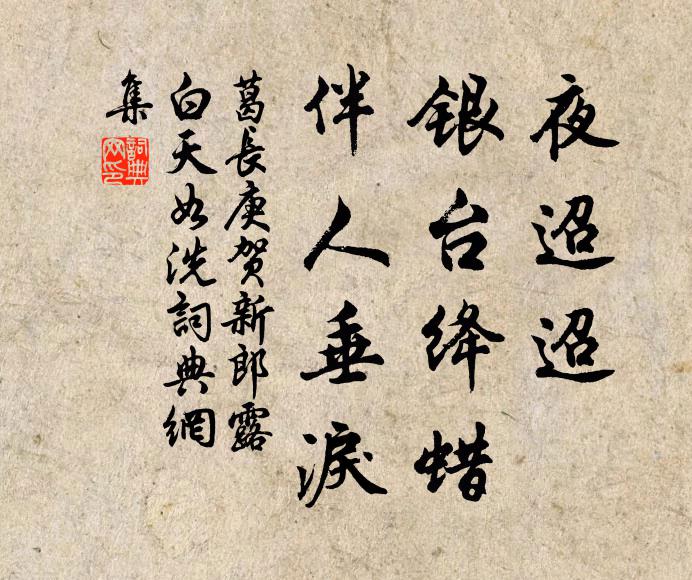 夜迢迢
银台绛蜡
伴人垂淚
葛長庚贺新郎露
白天如洗詞典網
集
詞典网印